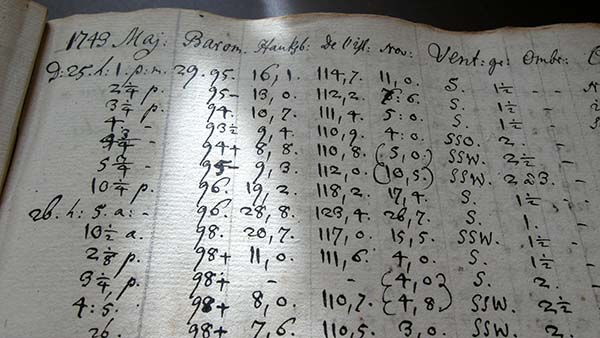 1743 Maj: Barom. Hauksb: De l'isl: Nov: Vent: ge: Ombr:
D: 25. h: 1. p: m. 29. 95. 16, 1. 114, 7. 11, 0. S. 1½ - -
2¼ p. 95- 13, 0. 112, 2. 6. S. 1½ - -
3¼ p. 94. 10, 7. 111, 4. 5: 0. S. 1½
93½ 9, 4 110, 9. 4: 0. SSO. 2. -
94+ 8, 8. 110, 8. (5, 0) SSW. 2½ -
5¼ - 95- 9, 3. 112, 0. (10, 5) SSW. 2 a 3. -
10¼ p. 96. 19, 2. 118, 2. 17, 4. S. 1½
26. h: 5. a: - 96. 28, 8. 123, 4. 26, 7. S. 1. -
10½ a. 98. 20, 7. 117, 0. 15, 5. SSW. 1½ -
p. 98+ 11, 0. 111, 6. 4, 0. S. 1½ -
3¼, p. 98+ - - (4, 0) S. 2. -
4: 5. 98+ 8, 0. 110, 7. (4, 8) SSW. 2½
26. 98+ 7, 6. 110, 5. 3, 0. SSW. 2.